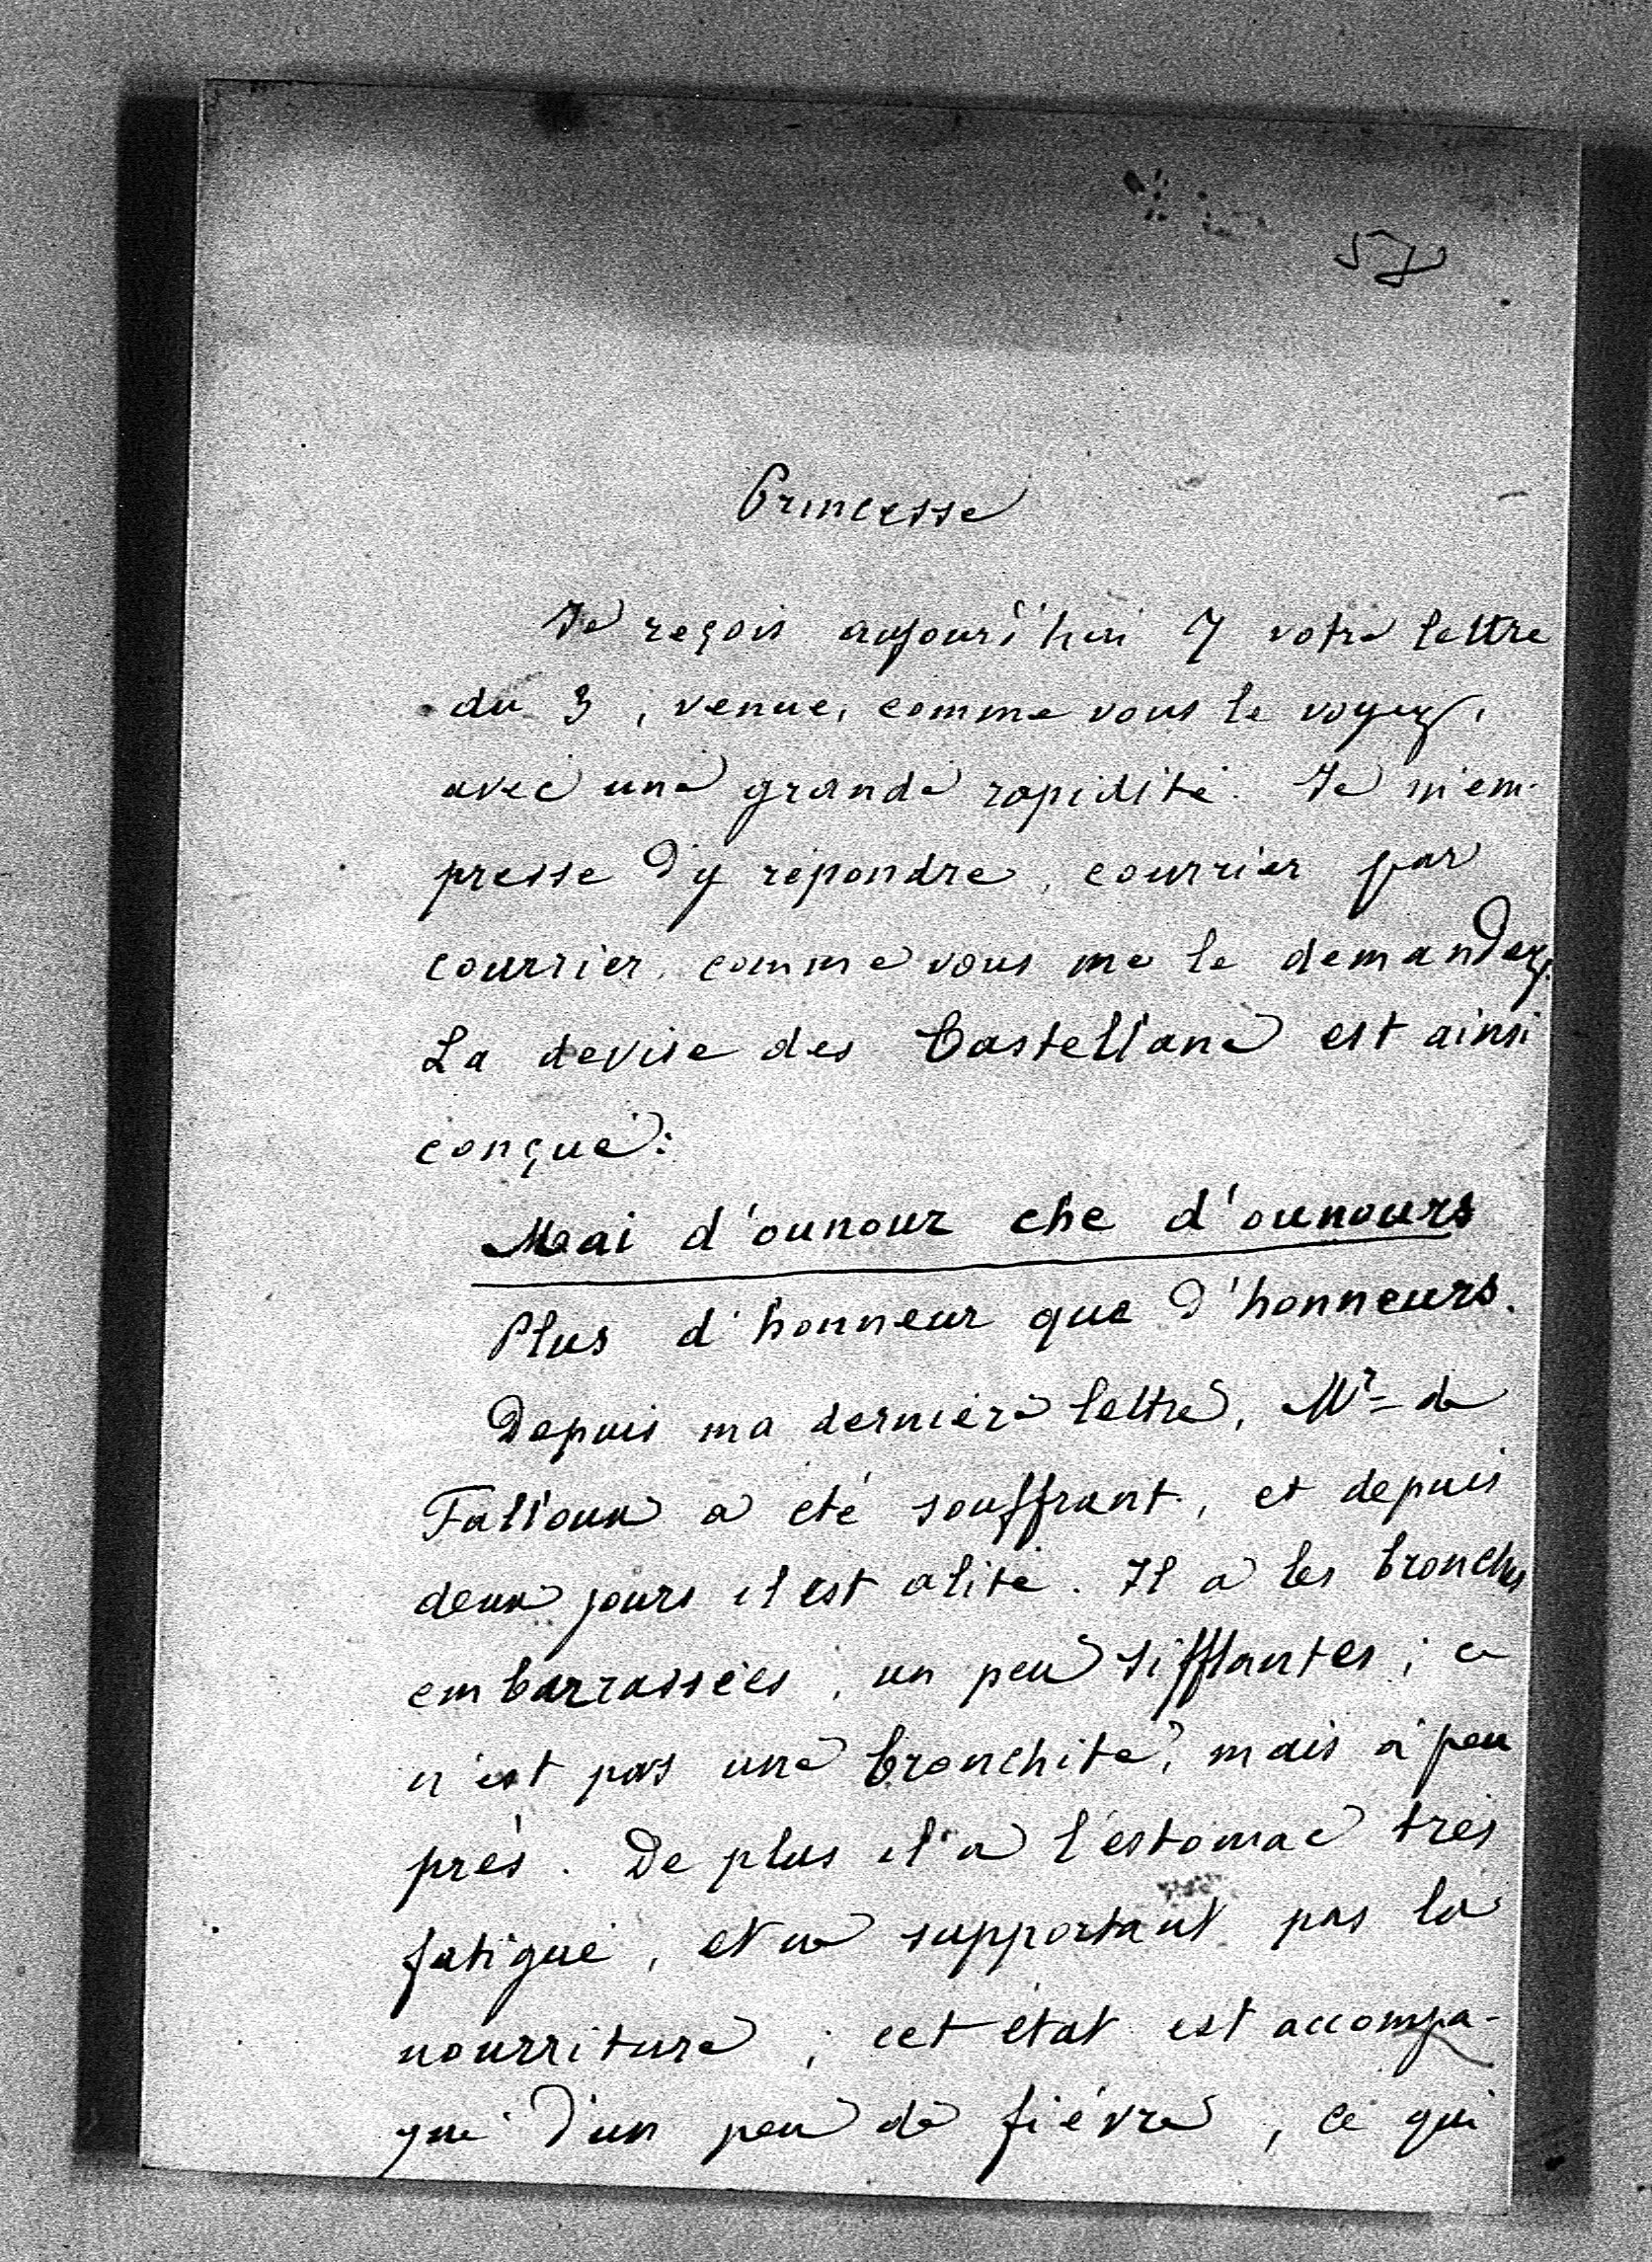 57
Princesse
Je reçois aujourd'hui 7 votre lettre
du 3, venue, comme vous le voyez,
avec une grande rapidité. Je m'em-
presse d'y répondre, courrier par
courrier, comme vous me le demandez.
La devise des Castellane est ainsi
conçue:
Mai d'ounour che d'ounours
Plus d'honneur que d'honneurs.
Depuis ma dernière lettre, Mr de
Falloux a été souffrant, et depuis
deux jours il est alité. Il a les bronches
embarrassées, un peu sifflantes; ce
n'est pas une bronchite, mais à peu
près. De plus il a l'estomac très
fatigué, et ne supportant pas la
nourriture; cet état est accompa-
gné d'un peu de fièvre, ce qui